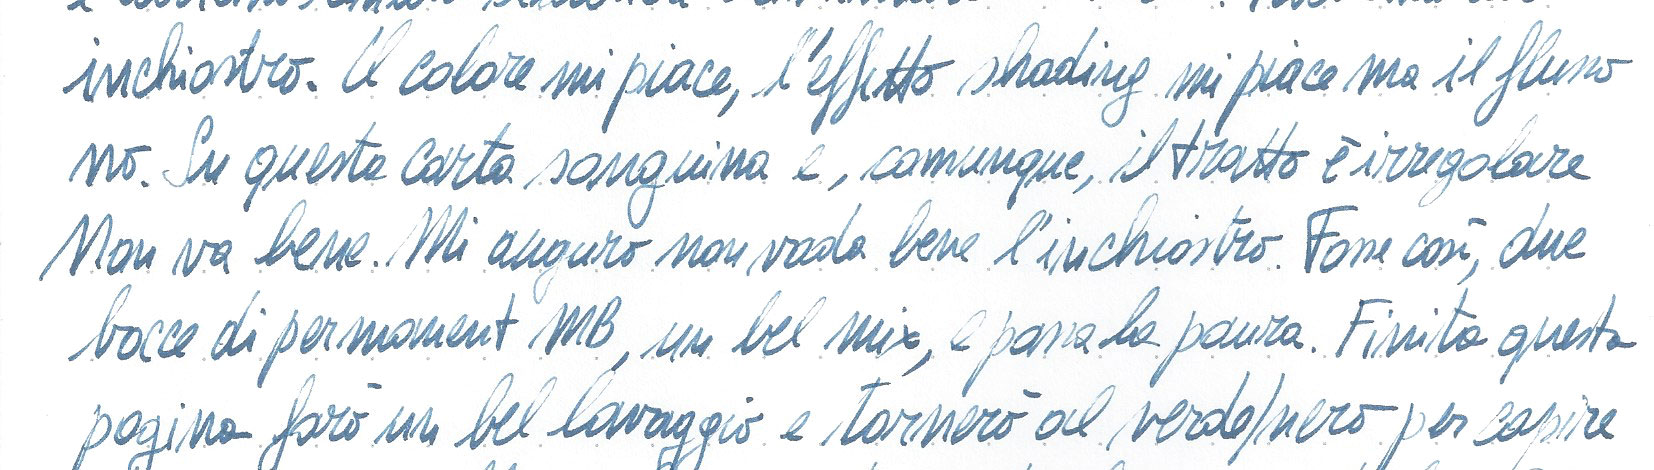 inchiostro. Il colore mi piace, l'effetto shading mi piace ma il flusso
no. Su questa carta sanguina e, comunque, il tratto è irregolare
Non va bene. Mi auguro non vada bene l'inchiostro. Fosse così, due
bocce di permanent MB, un bel mix, e passa la paura. Finita questa
pagina farò un bel lavaggio e tornerò al verde/nero per capire